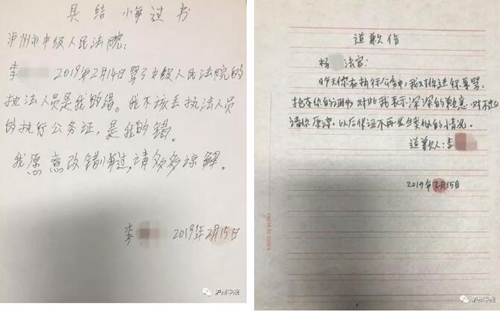 具结悔过书
泸州市中级人民法院:
李 2019年2月14日骂了中级人民法院的
执法人员是我的错。我不该丢执法人员
的执行公务证,是我的错。
我愿意改错悔过,请多多谅解。
李 2019年2月15日
道歉信
杨 法官:
昨天你在执行公务中,我对你进行辱骂,
你的证件 对此我表示深深的歉意,对不起
请你原谅,以后保证不再发生类似的情况。
道歉人:李
2019年2月15日